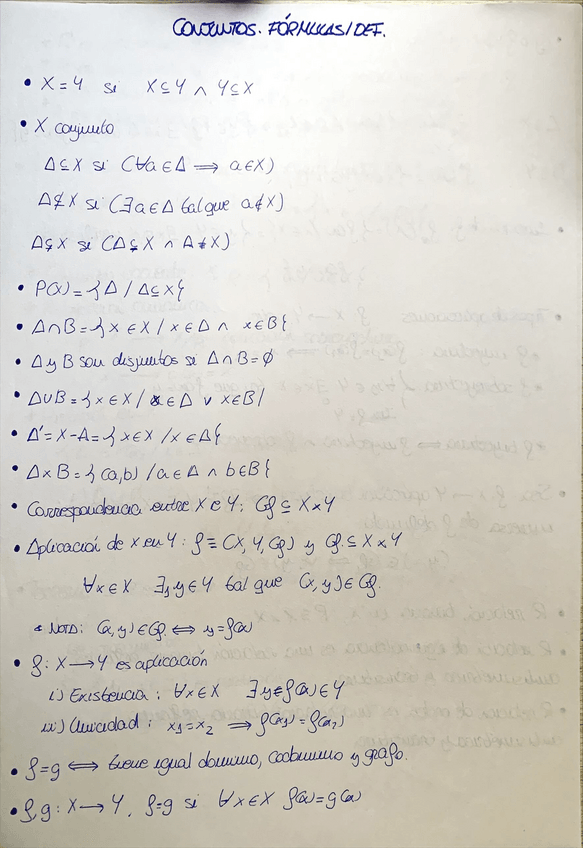 CONJUNTOS. FÓRMULAS/DEF.
• X = Y si X ⊆ Y ∧ Y ⊆ X
• X conjunto
A ⊆ X si (∀a ∈ A ⟹ a ∈ X)
A ⊈ X si (∃a ∈ A tal que a ∉ X)
A ⊊ X si (A ⊆ X ∧ A ≠ X)
• P(X) = { A / A ⊆ X }
• A ∩ B = { x ∈ X / x ∈ A ∧ x ∈ B }
• A y B son disjuntos si A ∩ B = ∅
• A ∪ B = { x ∈ X / x ∈ A ∨ x ∈ B /
• A' = X - A = { x ∈ X / x ∈ A }
• A × B = { (a,b) / a ∈ A ∧ b ∈ B }
• Correspondencia entre X e Y: Gf ⊆ X × Y
• Aplicación de X en Y: f ≡ (X, Y, Gf) y Gf ⊆ X × Y
∀x ∈ X ∃₁ y ∈ Y tal que (x, y) ∈ Gf.
* NOTA: (x, y) ∈ Gf ⟺ y = f(x)
• f: X → Y es aplicación
i) Existencia: ∀x ∈ X ∃ y = f(x) ∈ Y
ii) Unicidad: x₁ = x₂ ⟹ f(x₁) = f(x₂)
• f = g ⟺ tiene igual dominio, codominio y grafo.
• f, g: X → Y, f = g si ∀x ∈ X f(x) = g(x)